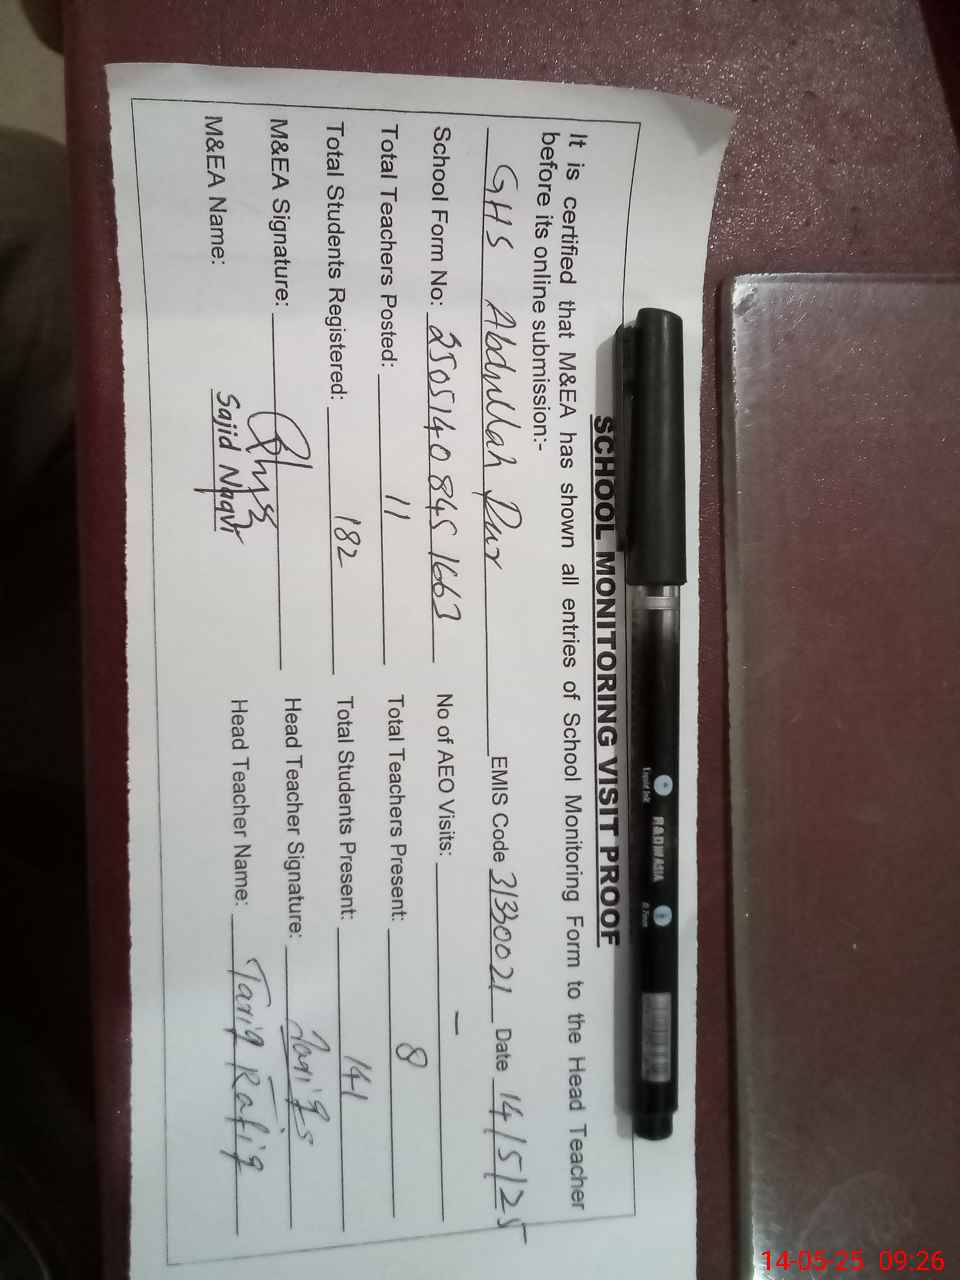 SCHOOL MONITORING VISIT PROOF
It is certified that M&EA has shown all entries of School Monitoring Form to the Head Teacher
before its online submission:-
GHS Abdullah Pur EMIS Code 31330021 Date 14/5/25
School Form No: 2505140845 1663 No of AEO Visits: –
Total Teachers Posted: 11 Total Teachers Present: 8
Total Students Registered: 182 Total Students Present: 141
M&EA Signature: Head Teacher Signature:
M&EA Name: Sajid Naqvi Head Teacher Name: Tariq Rafiq
Liquid Ink RADIWASIA 0.7mm
14-05-25 09:26